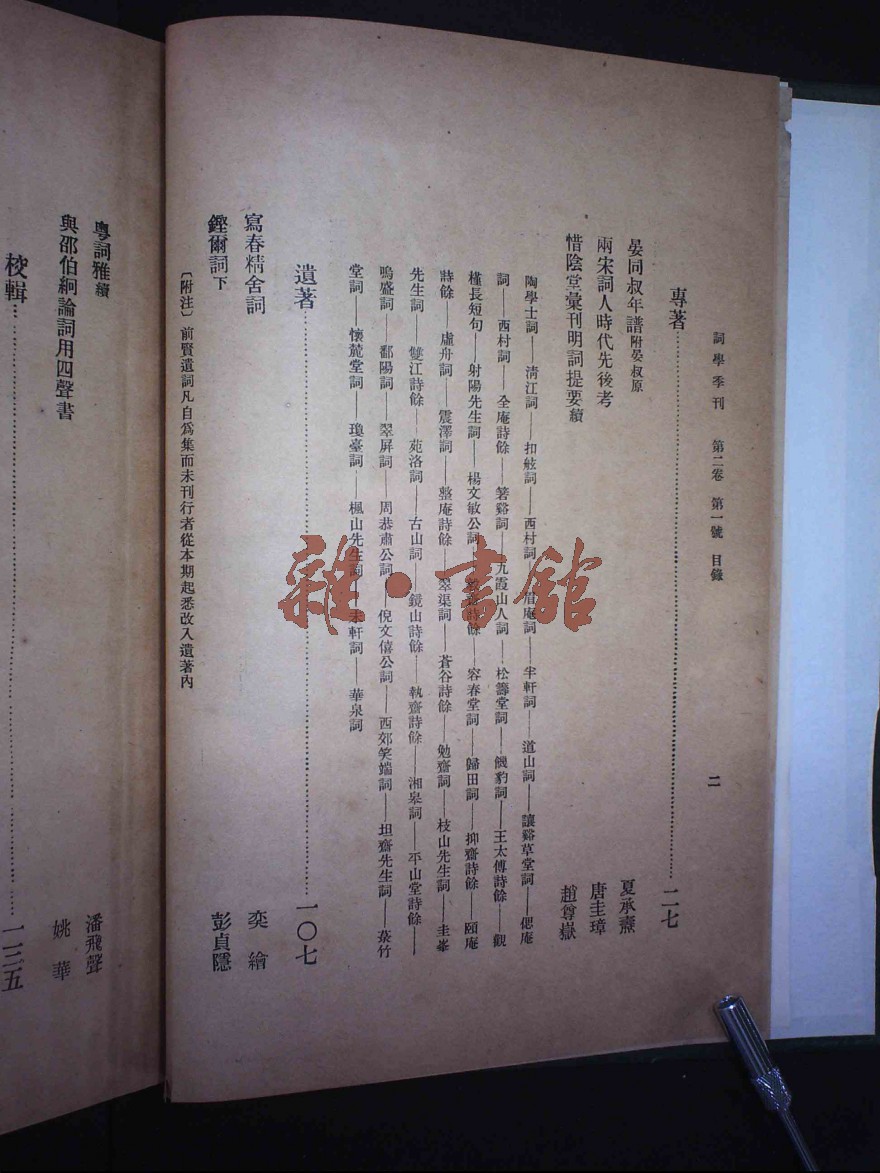 詞學季刊 第二卷 第一號 目錄 二
專著……二七
晏同叔年譜附晏叔原 夏承燾
兩宋詞人時代先後考 唐圭璋
惜陰堂彙刊明詞提要續 趙尊嶽
陶學士詞——清江詞——扣舷詞——西村詞——眉庵詞——半軒詞——道山詞——讓谿草堂詞——偲庵
詞——西村詞——全庵詩餘——箬谿詞——九霞山人詞——松籌堂詞——饑豹詞——王太傅詩餘——觀
槿長短句——射陽先生詞——楊文敏公詞——詩餘——容春堂詞——歸田詞——抑齋詩餘——頤庵
詩餘——虛舟詞——震澤詞——整庵詩餘——翠渠詞——蒼谷詩餘——勉齋詞——枝山先生詞——圭峯
先生詞——雙江詩餘——苑洛詞——古山詞——鏡山詩餘——執齋詩餘——湘皋詞——平山堂詩餘——
鳴盛詞——鄱陽詞——翠屏詞——周恭肅公詞——倪文僖公詞——西郊笑端詞——坦齋先生詞——菉竹
堂詞——懷麓堂詞——瓊臺詞——楓山先生詞——未軒詞——華泉詞
遺著……一〇七
寫春精舍詞 奕繪
鏗爾詞下 彭貞隱
〔附注〕前賢遺詞凡自爲集而未刊行者從本期起悉改入遺著內
粵詞雅續 潘飛聲
與邵伯絅論詞用四聲書 姚華
校輯……一三五
雜·書館